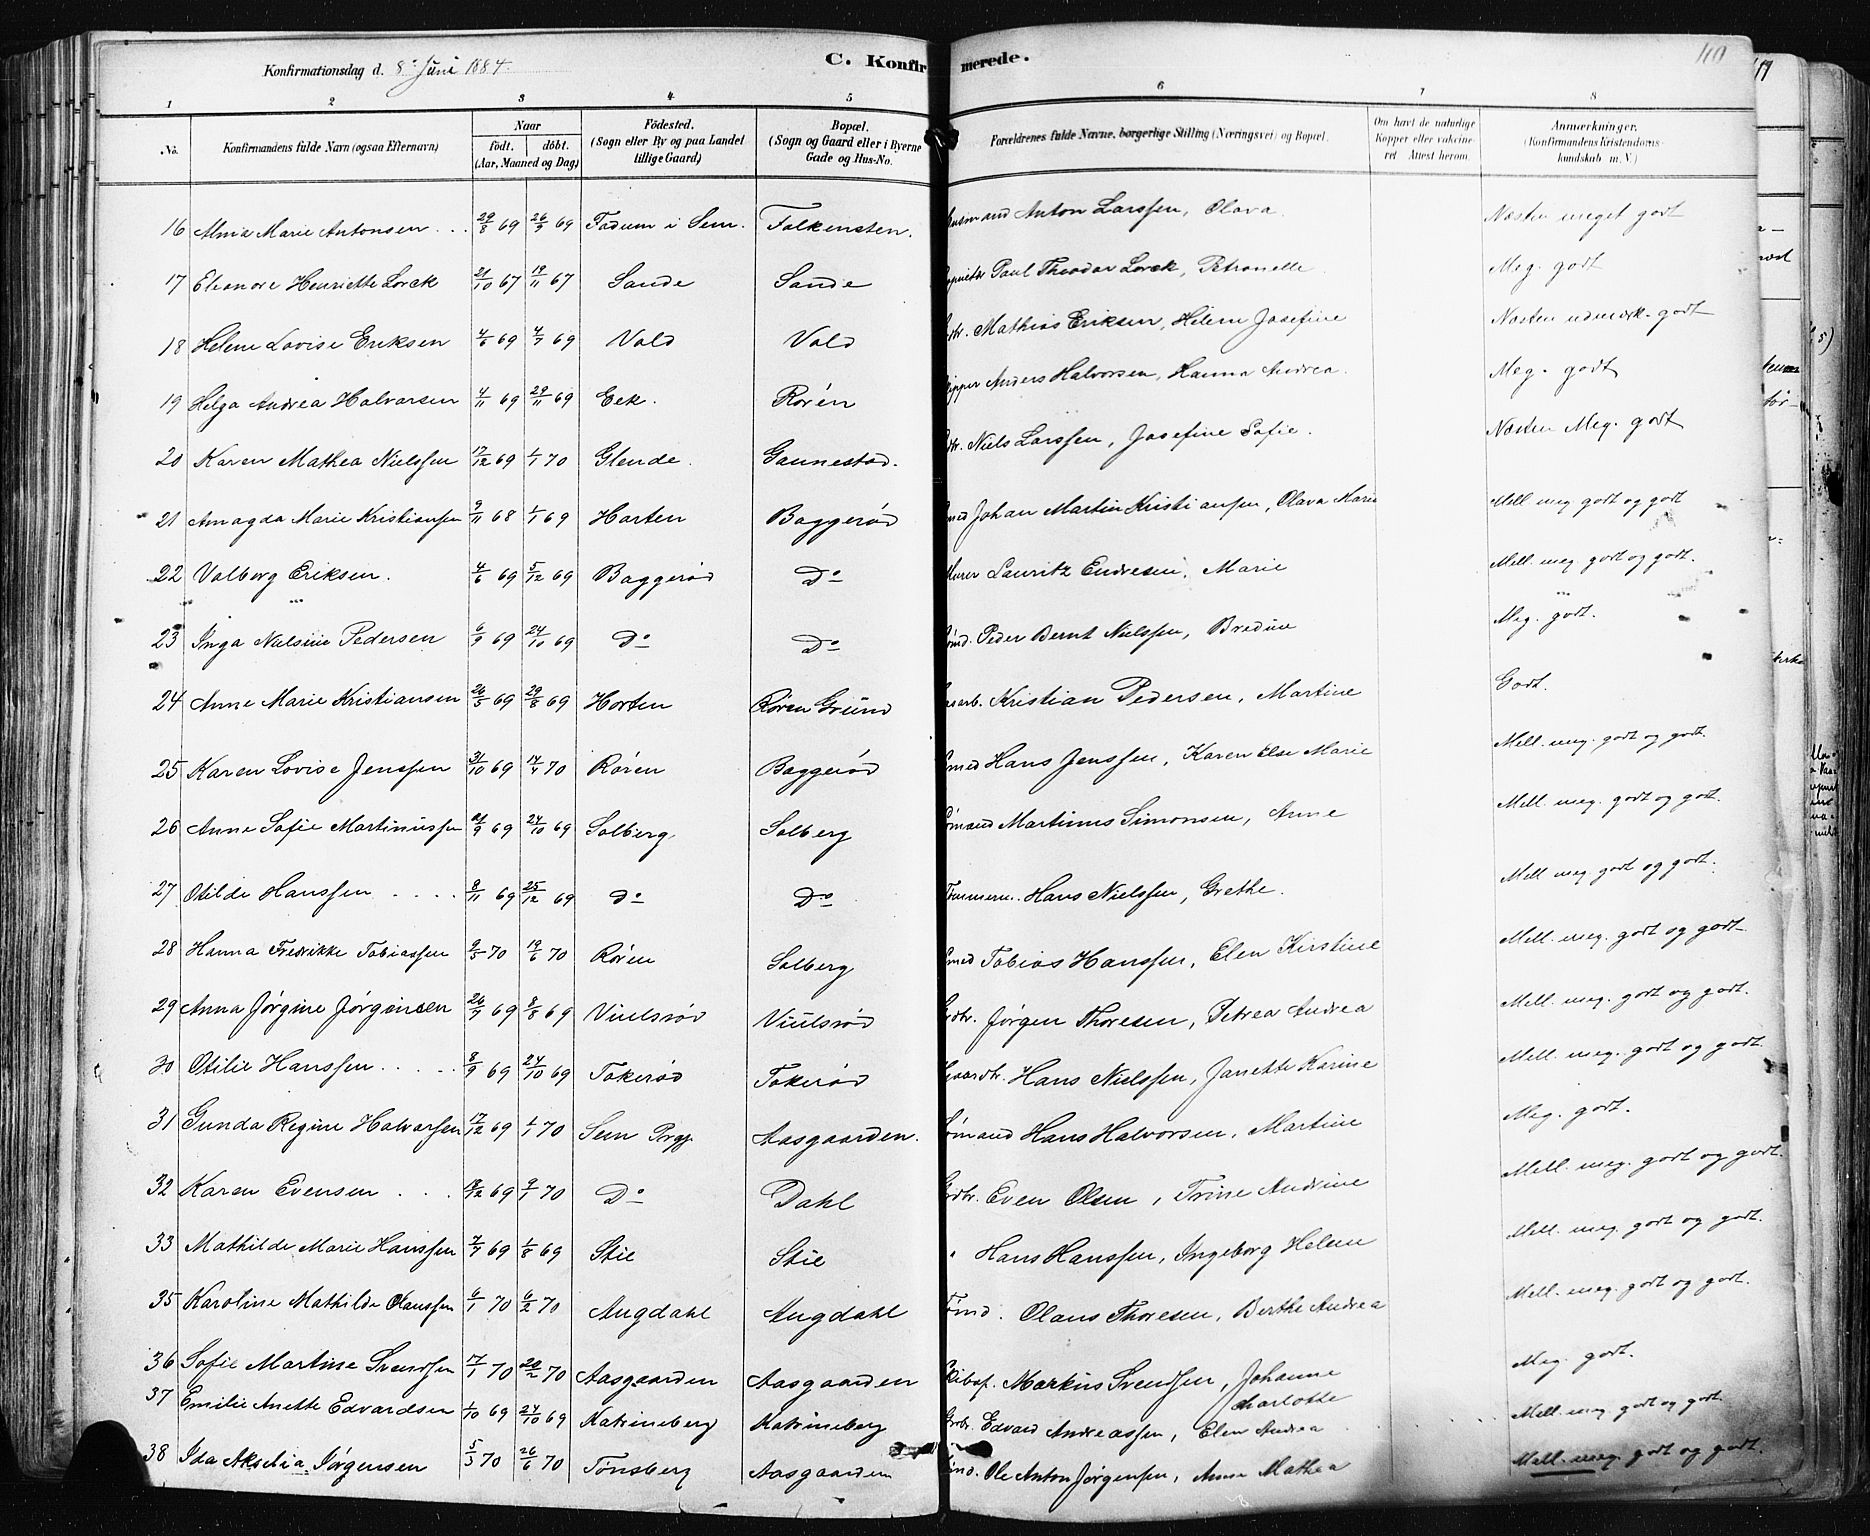 Konfirmationsdag d. 8de Juni 1884.
C. Konfirmerede.
110
1 2 3 4 5 6 7 8
No. Konfirmandens fulde Navn (ogsaa Efternavn) Naar født. døbt. (Aar, Maaned og Dag) Fødested. (Sogn eller By og paa Landet tillige Gaard) Bopæl. (Sogn og Gaard eller i Byerne Gade og Hus-No. Forældrenes fulde Navne, borgerlige Stilling (Næringsvei) og Bopæl. Om havt de naturlige Kopper eller vaksineret Attest herom. Anmærkninger. (Konfirmandens Kristendomskundskab m. V.)
16 Alma Marie Antonsen 29/8 69 26/9 69 Fadum i Sem. Falkensten. Anton Larssen, Olava. Næsten meget godt
17 Eleonore Henriette Lorck 21/10 67 19/11 67 Sande Sande Paul Theodor Lorck, Petronelle Meg. godt
18 Helene Lovise Eriksen 4/6 69 4/7 69 Vold Vold Mathias Eriksen, Helene Josefine Næsten udmærk. godt
19 Helga Andrea Halvorsen 4/11 69 29/11 69 Eek. Rørén Anders Halvorsen, Hanna Andrea. Meg. godt
20 Karen Mathea Nielssen 17/12 69 1/1 70 Glende. Gannestad. Niels Larssen, Josefine Sofie. Næsten Meg. godt
21 Amagda Marie Kristiansen 9/11 68 1/1 69 Horten Baggerød Smed Johan Martin Kristiansen, Olava Marie Mell meg godt og godt
22 Valborg Eriksen. 4/6 69 5/12 69 Baggerød Do Murer Lauritz Endresen, Marie Mell. meg. godt og godt.
23 Inga Nielsine Pedersen 6/9 69 24/10 69 Do Do Peder Bernt Nielssen, Bredine Meg. godt.
24 Anne Marie Kristiansen 26/5 69 29/8 69 Horten Røren Gründ Kristian Pedersen, Martine Godt.
25 Karen Lovise Jenssen 31/10 69 17/4 70 Røren Baggerød Smed Hans Jenssen, Karen Else Marie Mell. meg. godt og godt.
26 Anne Sofie Martinussen 21/9 69 24/10 69 Solberg Solberg Sømand Martinus Simonsen, Anne Mell. meg. godt og godt.
27 Otilde Hanssen 8/11 69 25/12 69 Do Do Tømmerm. Hans Nielssen, Grethe. Mell meg. godt og godt.
28 Hanna Fredrikke Tobiassen 9/5 70 19/6 70 Røren Solberg Smed Tobias Hanssen, Elen Kirstine Mell. meg. godt og godt
29 Anna Jørgine Jørgensen 26/7 69 8/8 69 Viulsrød Viulsrød Grdbr. Jørgen Thoresen, Petrea Andrea Mell. meg. godt og godt.
30 Otilie Hanssen 8/9 69 24/10 69 Tokerød Tokerød Gaardbr. Hans Nielssen, Janette Karine Mell. meg. godt og godt
31 Gunda Regine Halvorsen 17/12 69 1/1 70 Sem Prgj. Aasgaarden. Sømand Hans Halvorsen, Martine Meg. godt.
32 Karen Evensen 18/12 69 9/1 70 Do Dahl Grdbr. Even Olsen, Trine Andrine Mell. meg. godt og godt.
33 Mathilde Marie Hanssen 7/7 69 1/8 69 Stie Stie " Hans Hanssen, Ingeborg Helene Mell. meg. godt og godt.
35 Karoline Mathilde Olaussen 6/1 70 6/2 70 Augdahl Augdahl Tømd. Olaus Thoresen, Berthe Andrea Mell. meg. godt og godt.
36 Sofie Martine Svendsen 17/1 70 20/2 70 Aasgaarden Aasgaarden Skibsf. Markus Svendsen, Johanne Charlotte Meg. godt.
37 Emilie Anette Edvardsen 1/10 69 24/10 69 Katrineberg Katrineberg Grdbr. Edvard Andreassen, Elen Andrea Mell. meg. godt og godt.
38 Ida Akselia Jørgensen 5/3 70 26/6 70 Tønsberg Aasgaarden Ole Anton Jørgensen, Anne Mathea Mell. meg. godt og godt.